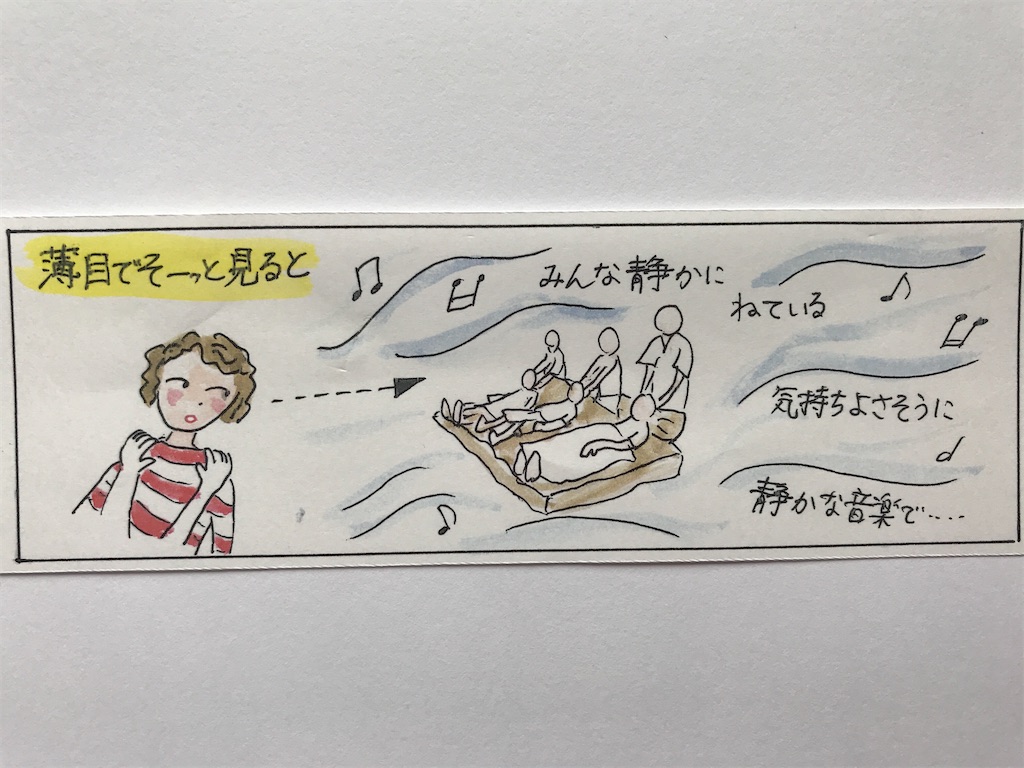 薄目でそーっと見ると
みんな静かに
ねている
気持ちよさそうに
静かな音楽で‥‥